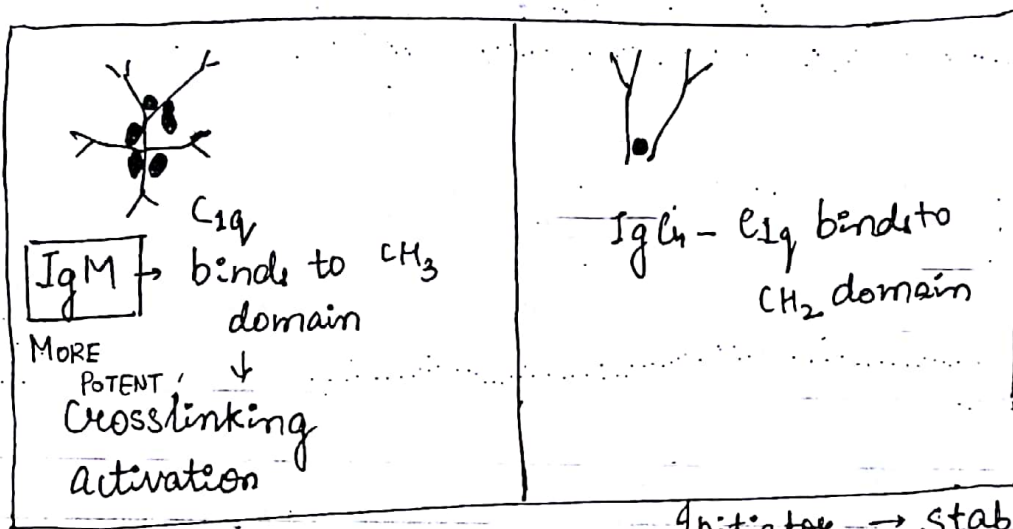 C1q
IgM → binds to CH3
domain
↓
MORE
POTENT
Crosslinking
activation
IgG - C1q binds to
CH2 domain
Initiator → stab